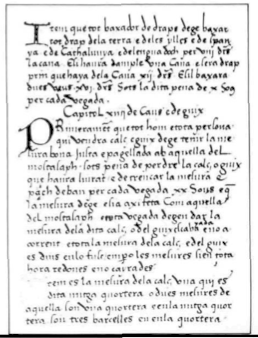 Item que tot baxador de draps dege baxar
tot drap dela terra e deles ylles e de span
ya e de Cathalunya e delengua doch per vnj drs
la cana e si haura dample vna Cana e sera drap
prim que haya dela Cana xij drs E si baxara
dues vaus xvj drs Sots la dita pena de x sos
per cada vegada
Capitol xiiij de Caus e de guix
Primerament que tot hom e tota persona
qui vendra calc e guix dege tenir la me
sura bona justa e pagellada ab aquella del
mostalaph sots pena de perdre la calc o guix
que haura liurat e de trencar la mesura e
deban per cada vegada xx Sous e
la mesura dege esser axi teta Com aquella
del mostalaph e tota vegada degen dar la
mesura dela dita calc o del guix e no a
corrent e tota la mesura dela calc e del guix
es dins en lo fus empo les mesures sien tota
hora redones e no cayrades
Item es la mesura dela calc vna qui es
dita mitga quortera o dues mesures de
aquella son vna quortera e en la mitga quor
tera son tres barcelles e en la quortera